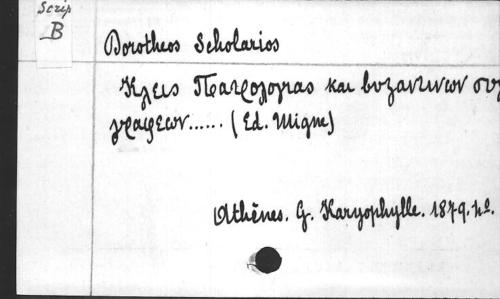 Scrip
B
Dorotheos Scholarios
Κλεις Πατρολογιας και βυζαντινων συγ
γραφεων...... (Ed. Migne)
Athènes. G. Karyophylle. 1879. 4o.